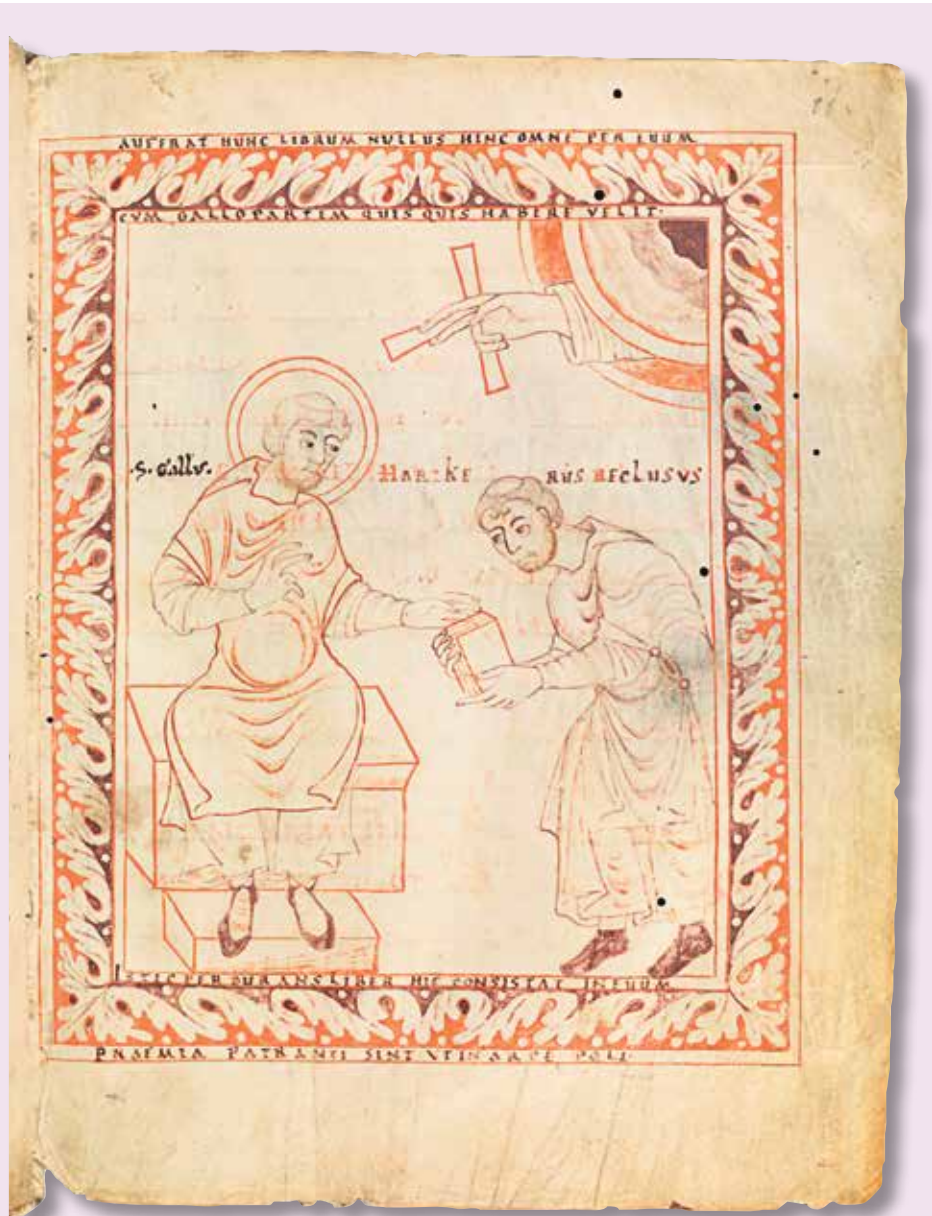 AUFERAT HUNC LIBRUM NULLUS HINC OMNE PER EUUM
CVM GALLO PARTEM QUISQUIS HABERE VELIT·
·S· Gallvs·
HARTKERUS RECLUSVS
ISTIC PERDURANS LIBER HIC CONSISTAT IN EUUM
PRAEMIA PATRANTI SINT VT IN ARCE POLI·